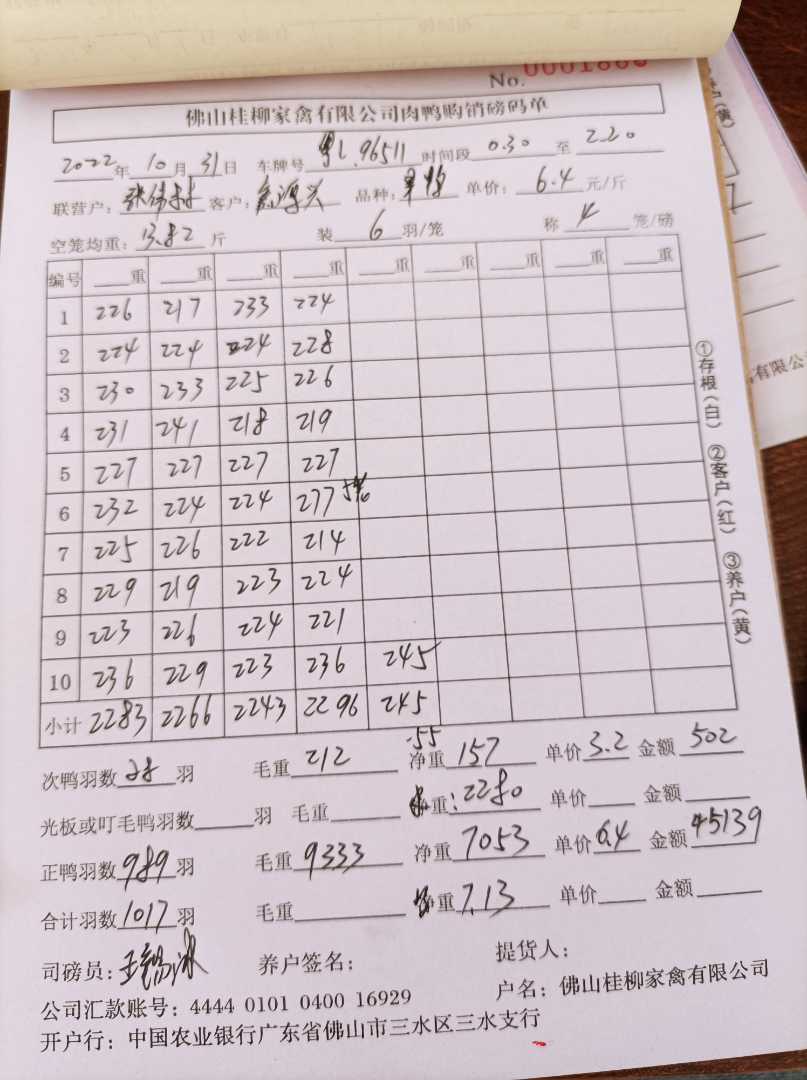 No. 000186
佛山桂柳家禽有限公司肉鸭购销磅码单
2022年10月31日 车牌号 粤L.96511 时间段 0.30 至 2.20
联营户: 客户: 品种: 单价: 6.4 元/斤
空笼均重: 13.82 斤 装 6 羽/笼 称 4 笼/磅
编号 重 重 重 重 重 重 重 重 重
1 226 217 233 224
2 224 224 224 228
3 230 233 225 226
4 231 241 218 219
5 227 227 227 227
6 232 224 224 277 5
7 225 226 222 214
8 229 219 223 224
9 223 226 224 221
10 236 229 223 236 245
小计 2283 2266 2243 2296 245
次鸭羽数 28 羽 毛重 212 -55 净重 157 单价 3.2 金额 502
光板或叮毛鸭羽数 羽 毛重 重: 2280 单价 金额
正鸭羽数 989 羽 毛重 9333 净重 7053 单价 6.4 金额 45139
合计羽数 1017 羽 毛重 净重 7.13 单价 金额
司磅员: 养户签名: 提货人:
公司汇款账号: 4444 0101 0400 16929 户名: 佛山桂柳家禽有限公司
开户行: 中国农业银行广东省佛山市三水区三水支行
①存根(白) ②客户(红) ③养户(黄)
(黄)
有限公